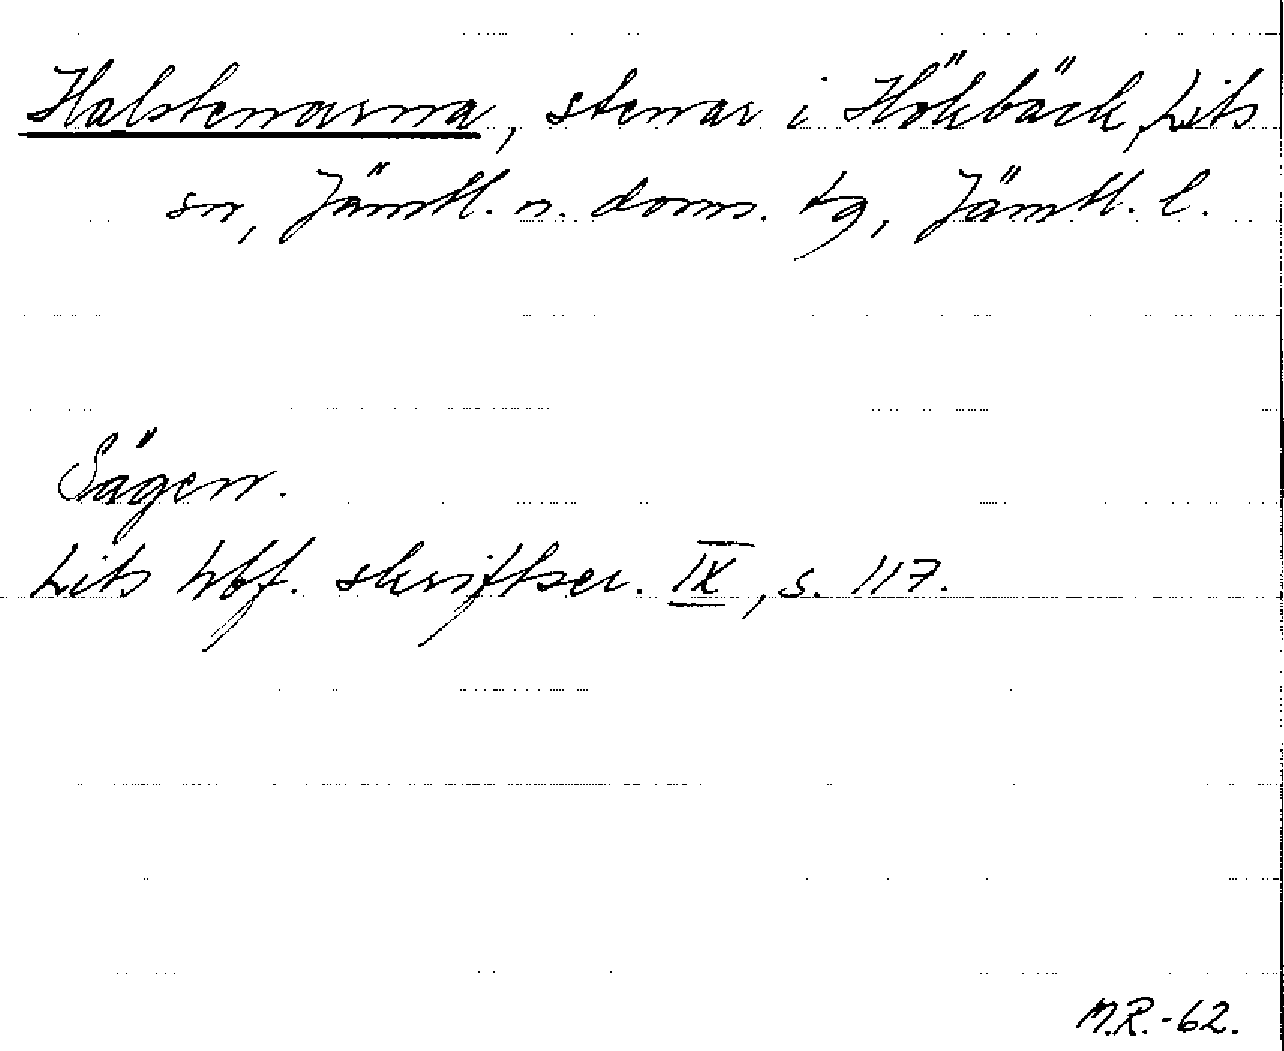 Halstenarna, stenar i Högbäck, Lits
sn, Jämtl. n. doms. tg, Jämtl. l.
Sägen.
Lits hbf. skriftser. IX, s. 117.
M.R.-62.